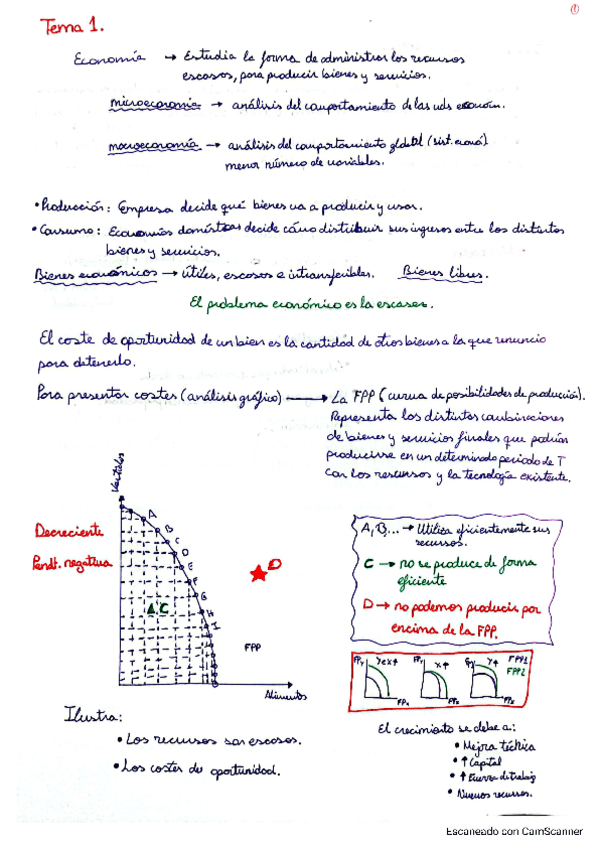 1
Tema 1.
Economía → Estudia la forma de administrar los recursos
escasos, para producir bienes y servicios.
microeconomía → análisis del comportamiento de las uds económ.
macroeconomía → análisis del comportamiento global (sist. econó)
menor número de variables.
• Producción: Empresa decide qué bienes va a producir y usar.
• Consumo: Economías domésticas decide cómo distribuir sus ingresos entre los distintos
bienes y servicios.
Bienes económicos → útiles, escosos e intransferibles. Bienes libres.
El problema económico es la escasez.
El coste de oportunidad de un bien es la cantidad de otros bienes a la que renuncio
para obtenerlo.
Para presentar costes (análisis gráfico) → La FPP (curva de posibilidades de producción).
Representa las distintas combinaciones
de bienes y servicios finales que podrían
producirse en un determinado periodo de T
con los recursos y la tecnología existente.
Vestidos
Decreciente
Pendt. negativa
A
B
C
D
E
F
G
H
I
C
D
FPP
Alimentos
A, B... → Utiliza eficientemente sus
recursos.
C → no se produce de forma
eficiente
D → no podemos producir por
encima de la FPP.
FPP1
FPP2
Ilustra:
• Los recursos son escasos.
• Los costes de oportunidad.
El crecimiento se debe a:
• Mejora técnica
• ↑ Capital
• ↑ Fuerza de trabajo
• Nuevos recursos.
Escaneado con CamScanner